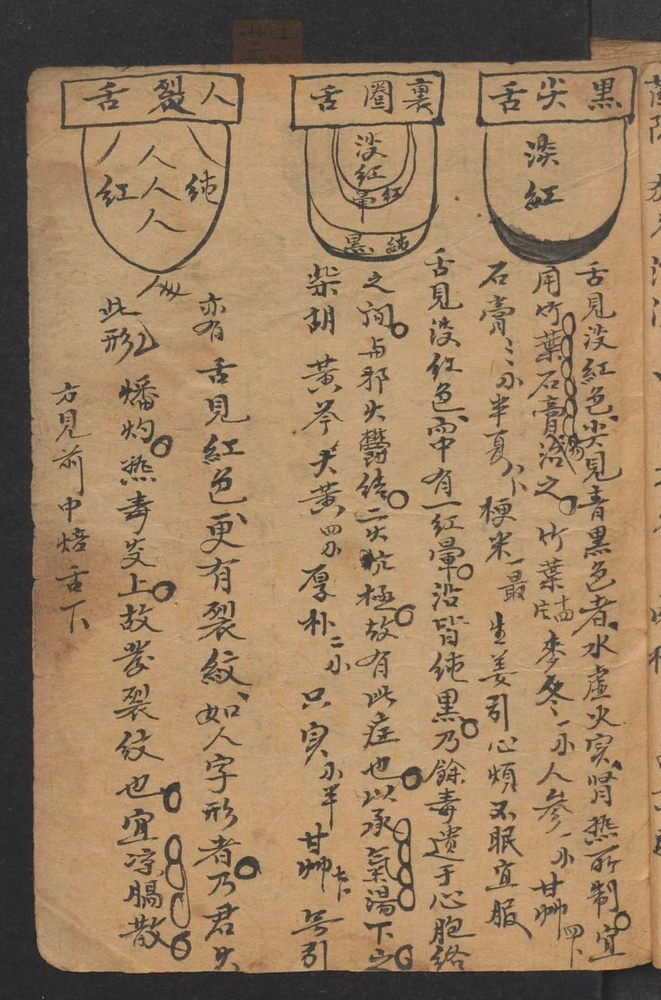 黑尖舌
淡紅
舌見淡紅色、尖見青黑色者、水虛火实、腎熱所制。宜
用竹葉石膏湯治之。竹葉 麥冬一小 人參一小 甘艸四卜
石膏二小 半夏八卜 梗米一最 生姜引 心煩不眠宜服
裏圈舌
淡紅
紅暈
純黑
舌見淡紅色、而中有一紅暈。沿皆純黑。乃餘毒遺于心胞絡
之间。与邪火鬱结。二火炕極。故有此症也。以承氣湯下之。
柴胡 黄芩 大黄四刃 厚朴二小 只实小半 甘艸 姜引
人裂舌
純紅
人人人
亦有舌見紅色、更有裂紋、如人字形者。乃君火
此形 燔灼。热毒炎上。故發裂紋也。宜凉膈散。
方見前中焙舌下